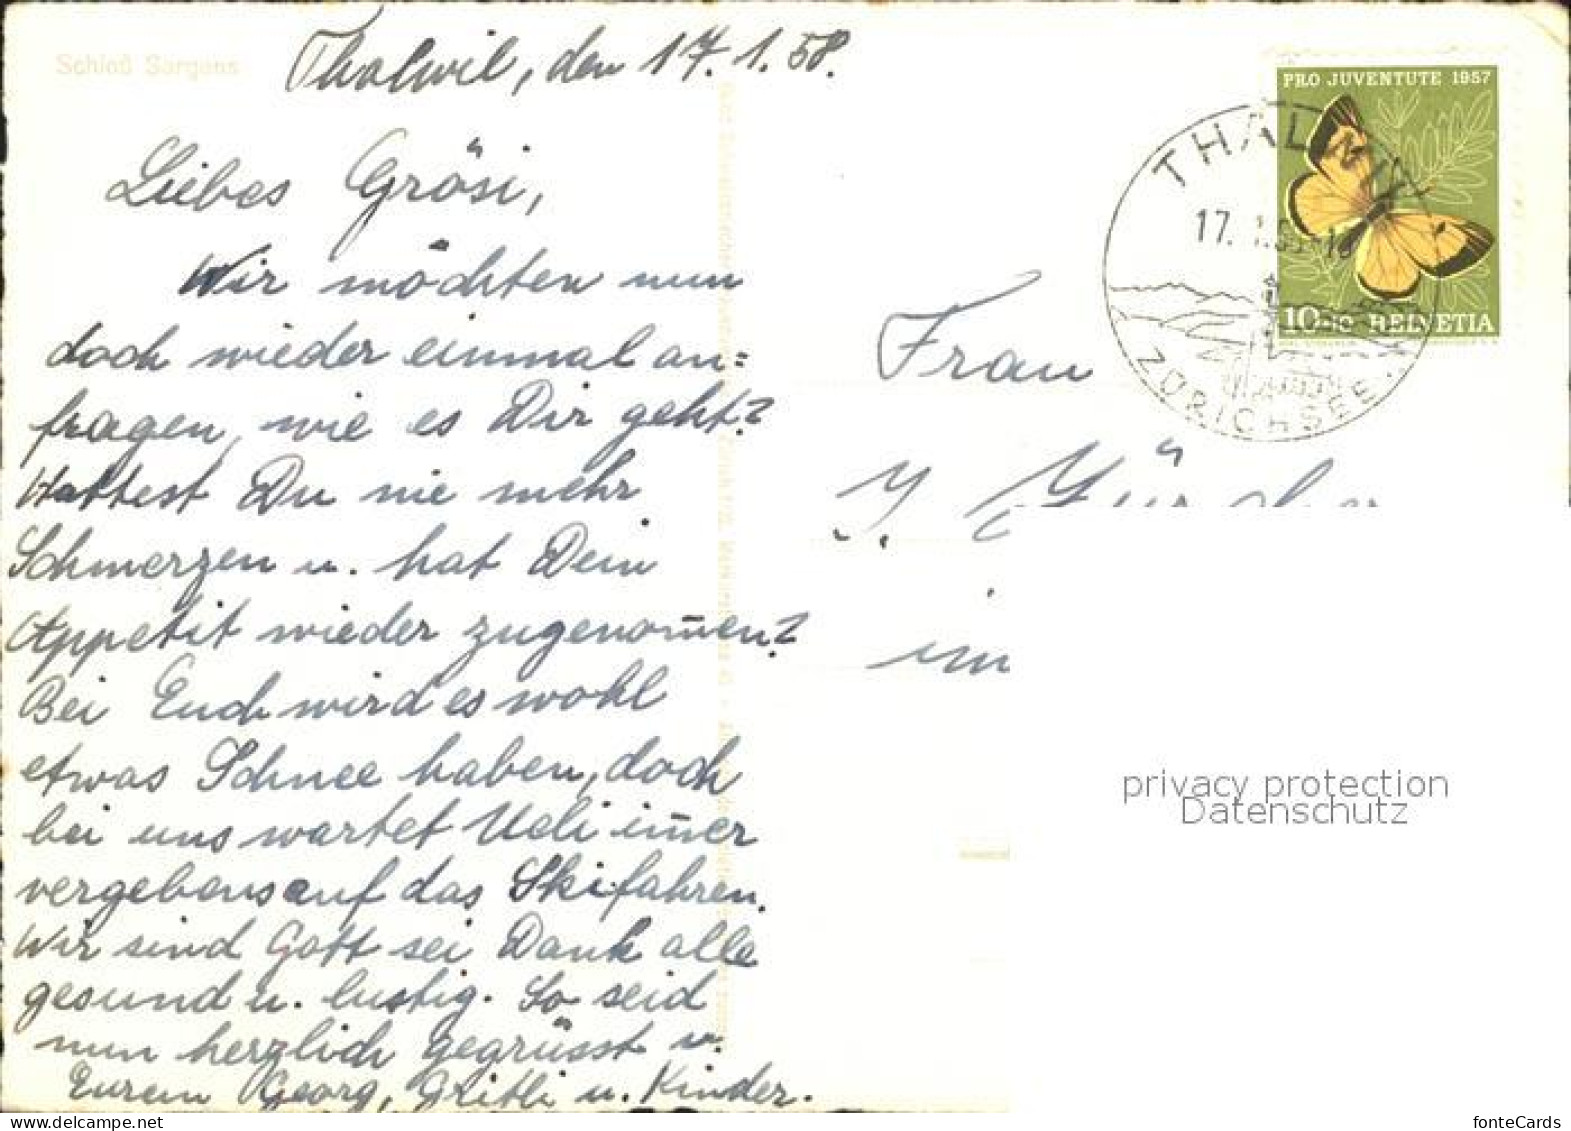 Schloß Sargans
Thalwil, den 17.1.58.
Liebes Grösi,
Wir möchten nun
doch wieder einmal an=
fragen, wie es Dir geht?
Hattest Du nie mehr
Schmerzen u. hat Dein
Appetit wieder zugenom̄en?
Bei Euch wird es wohl
etwas Schnee haben, doch
bei uns wartet Ueli im̄er
vergebens auf das Skifahren.
Wir sind Gott sei Dank alle
gesund u. lustig. So seid
nun herzlich gegrüsst v.
Eurem Georg, Gritli u. Kinder.
PRO JUVENTUTE 1957
10+10 HELVETIA
THALWIL
17. 1.
ZÜRICHSEE
Frau
im
privacy protection
Datenschutz
fonteCards